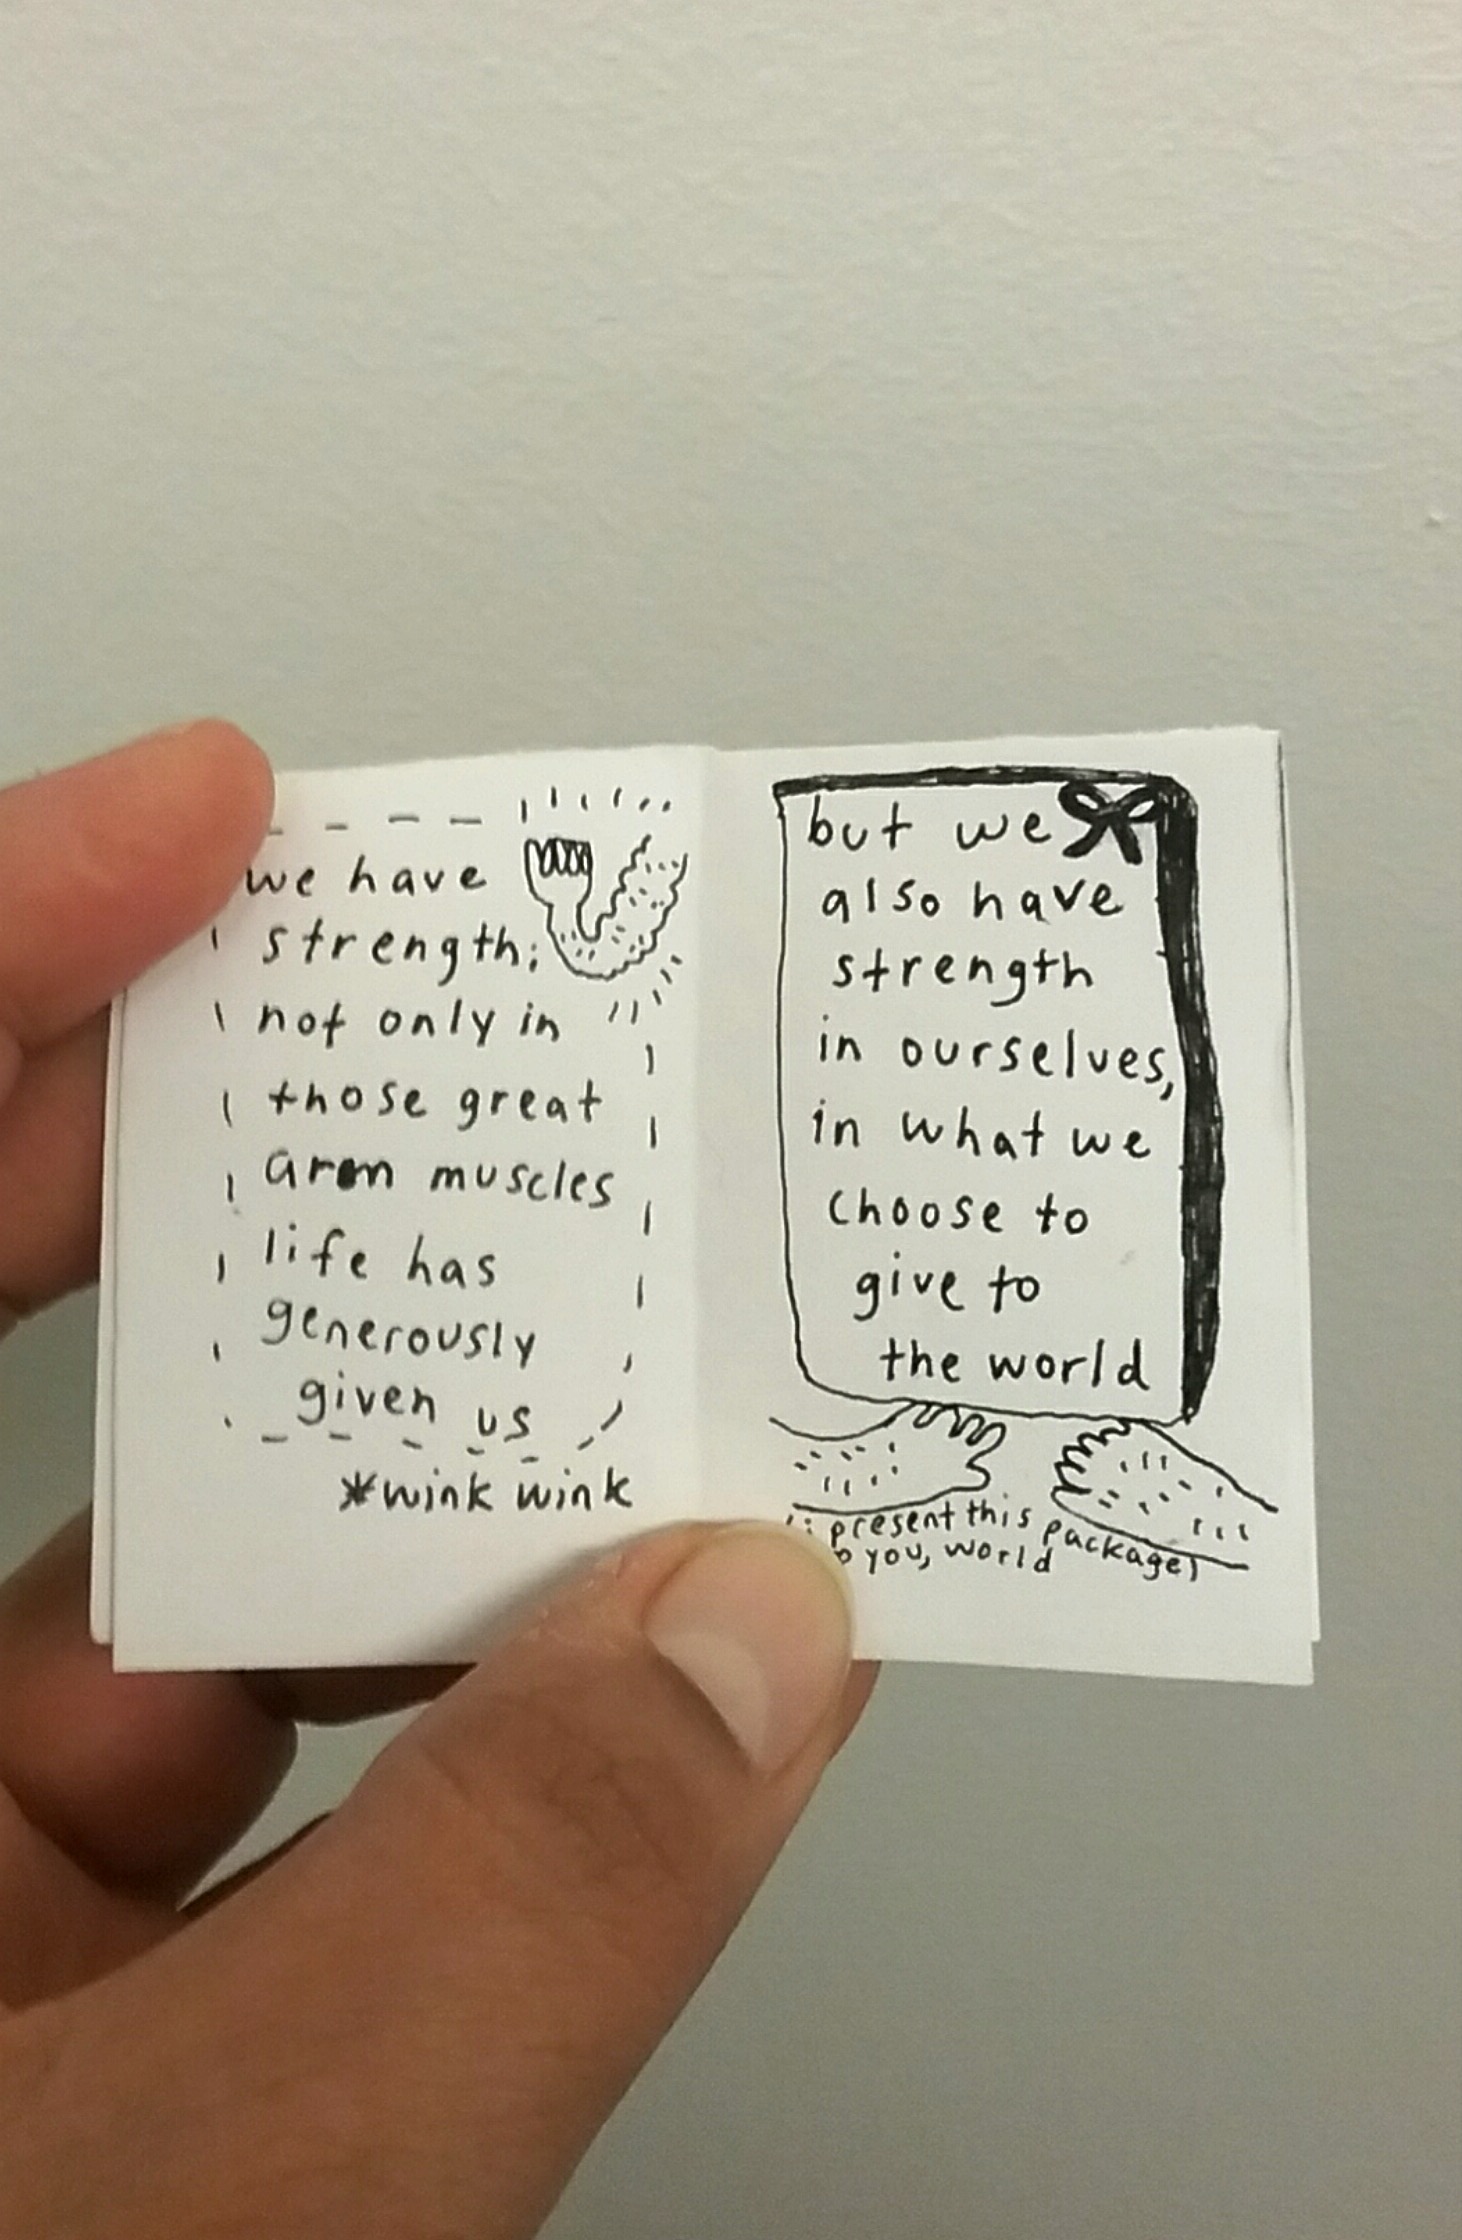 we have
strength;
not only in
those great
arm muscles
life has
generously
given us
*wink wink
but we
also have
strength
in ourselves,
in what we
choose to
give to
the world
present this package
you, world